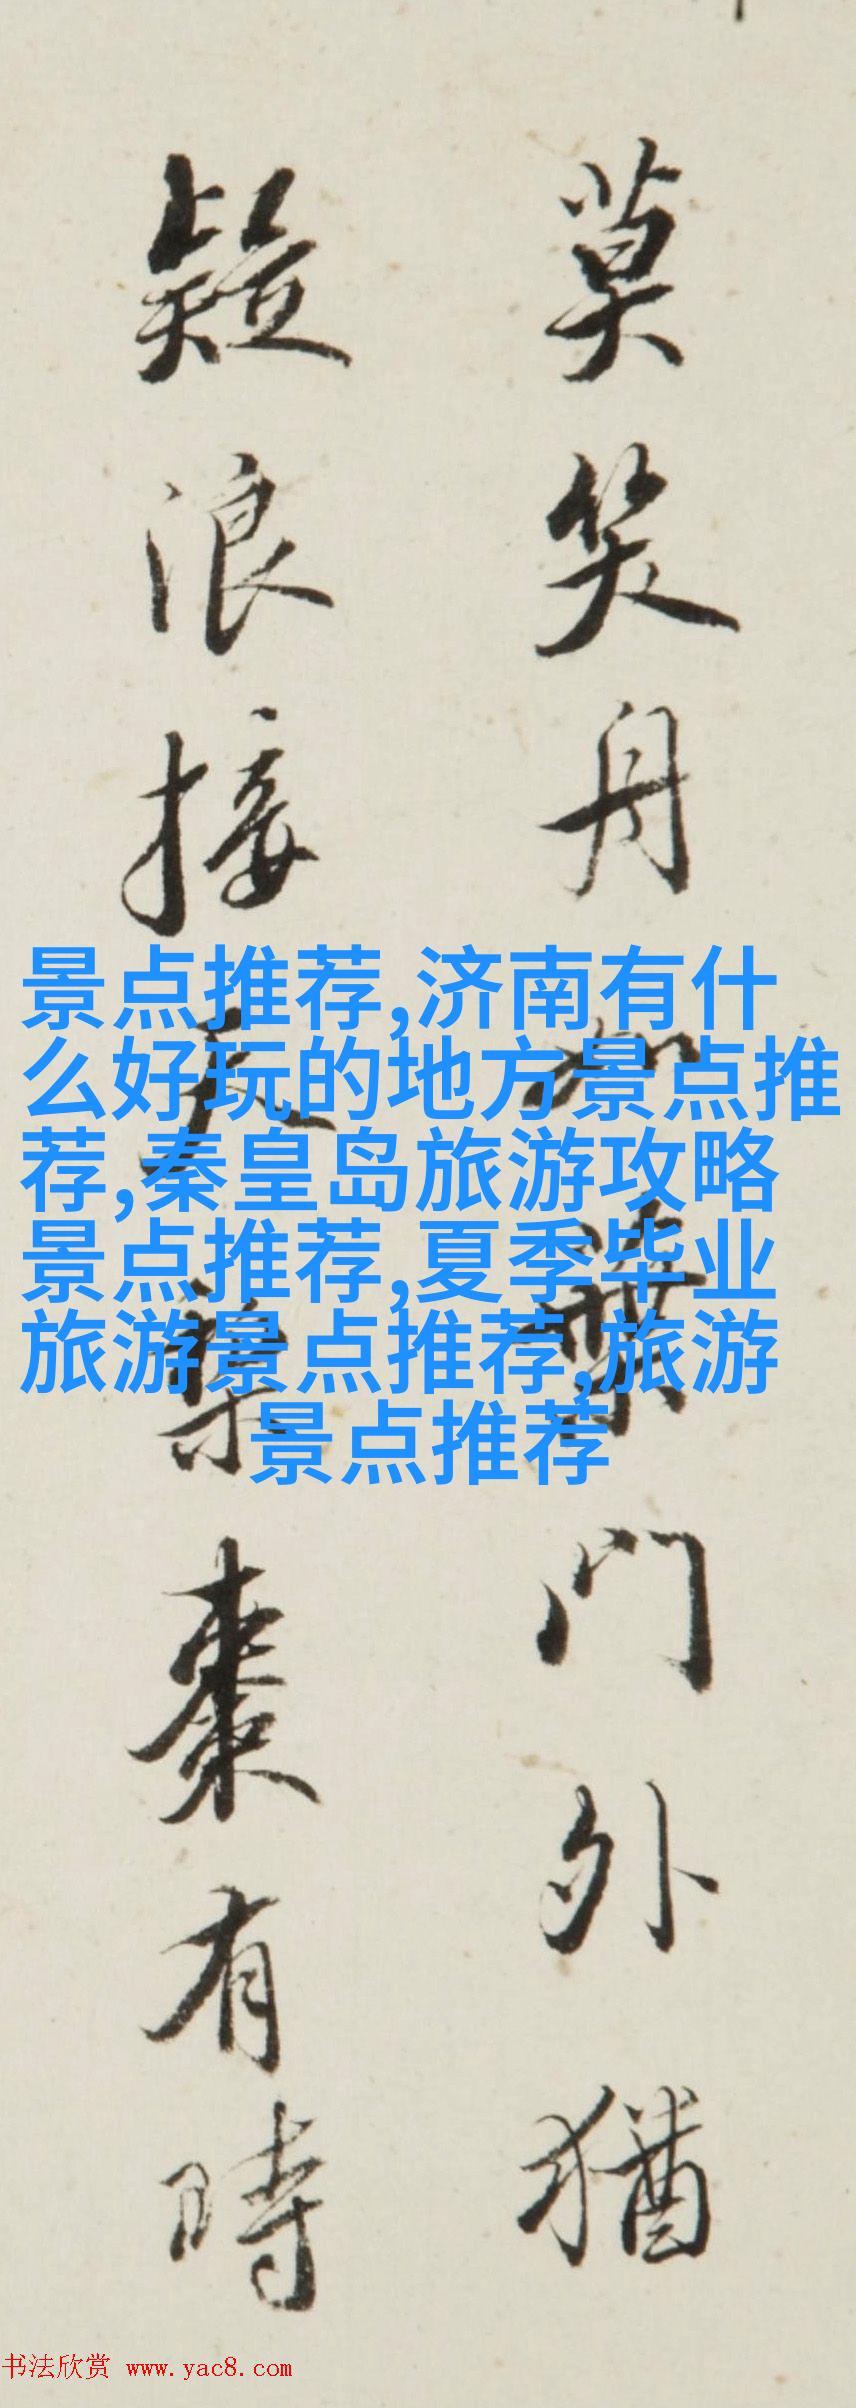 莫笑舟門外猶
疑浪接天棗有時
景点推荐,济南有什
么好玩的地方景点推
荐,秦皇岛旅游攻略
景点推荐,夏季毕业
旅游景点推荐,旅游
景点推荐
书法欣赏 www.yac8.com